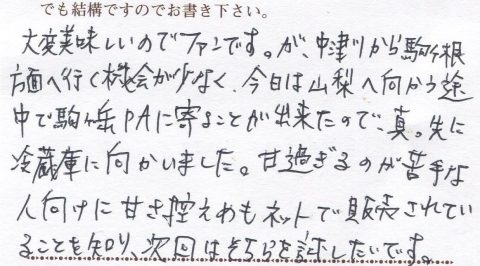 でも結構ですのでお書き下さい。
大変美味しいのでファンです。が、中津川から駒ヶ根
方面へ行く機会が少なく、今日は山梨へ向かう途
中で駒ヶ岳PAに寄ることが出来たので、真っ先に
冷蔵庫に向かいました。甘過ぎるのが苦手な
人向けに甘さ控えめもネットで販売されてい
ることを知り、次回はそちらを試したいです。